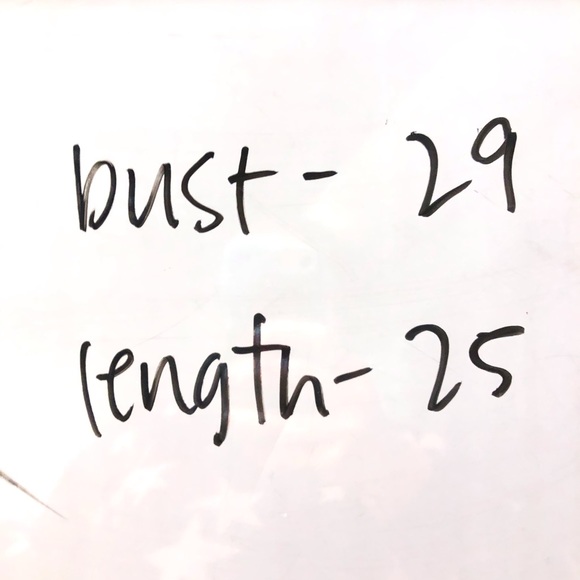 bust - 29
length - 25